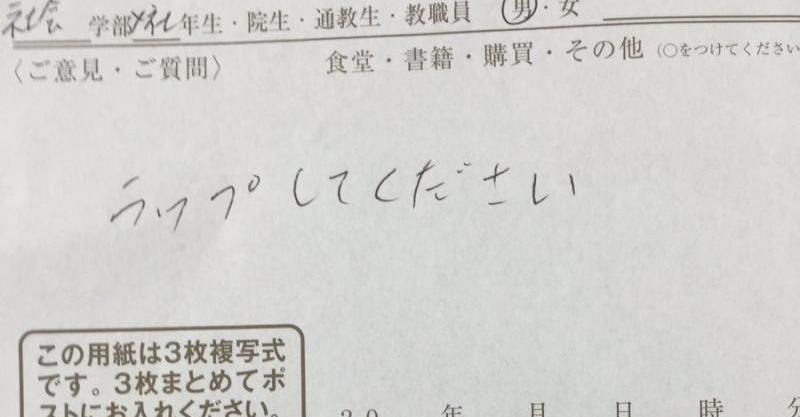 社会 学部 年生・院生・通教生・教職員 男・女
〈ご意見・ご質問〉 食堂・書籍・購買・その他 (○をつけてください
ラップしてください
この用紙は3枚複写式
です。3枚まとめてポ
ストにお入れください。
20 年 月 日 時 分